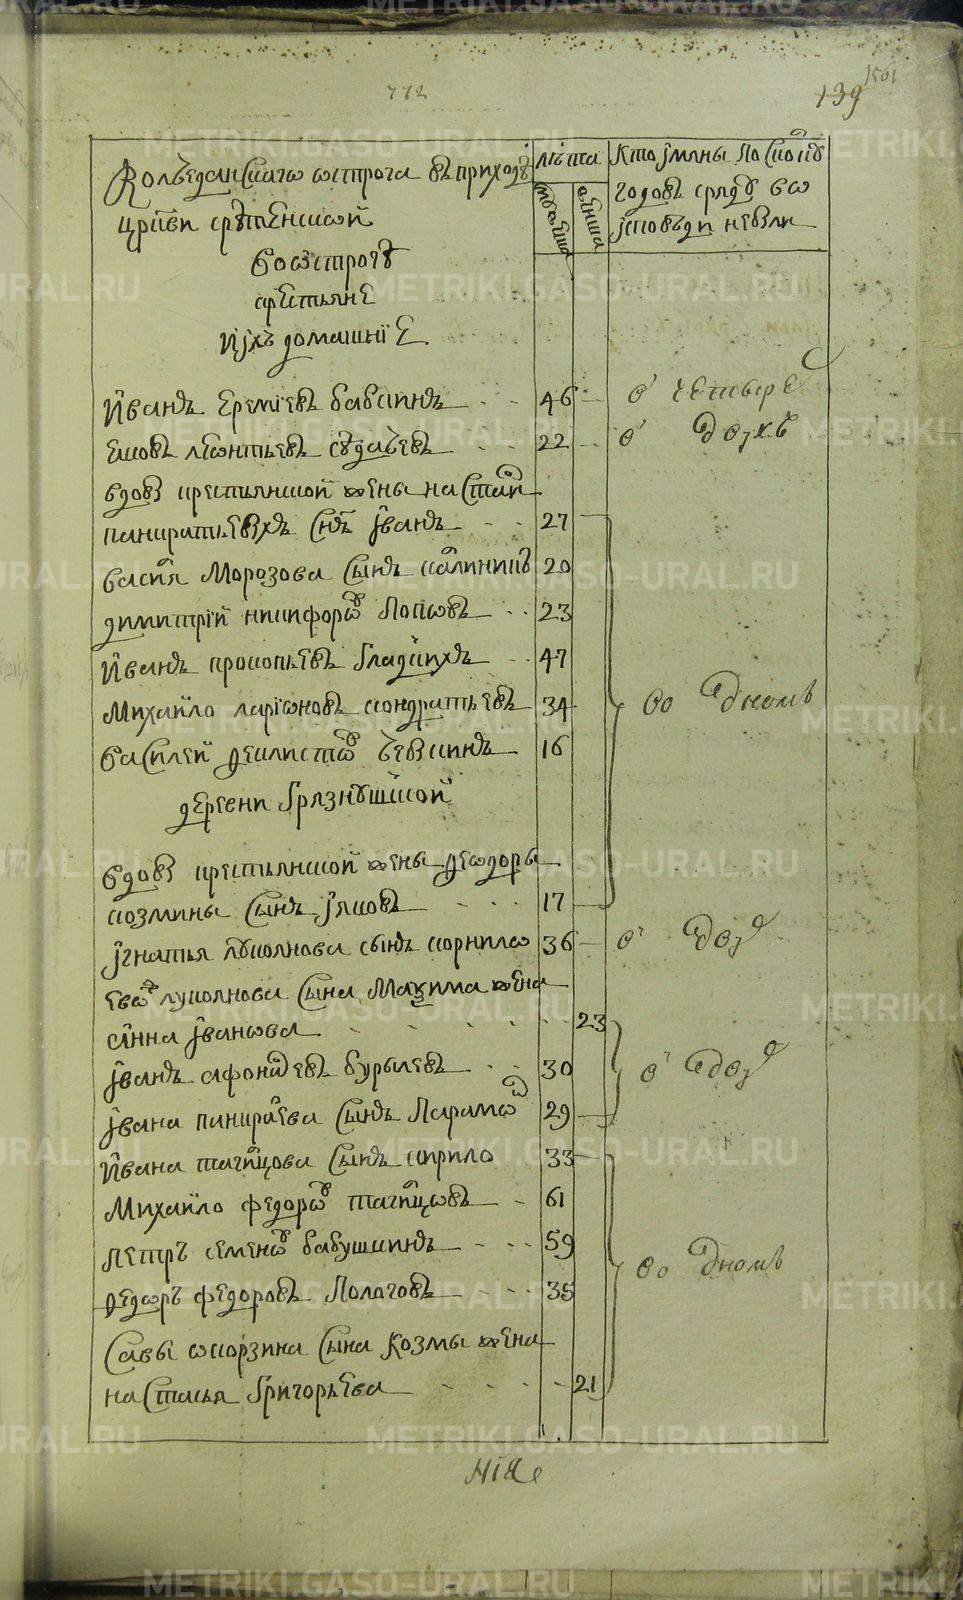 772
139
1561
Колчеданскаго острога въ приходѣ
цркви срѣтенской
во острогѣ
крестьяне
и ихъ домашніе
лѣта
мужеска
женска
кто имяны по сколку
годовъ сряду во
исповѣди небыли
Иванъ Еремѣевъ бабкинъ 46 в четыре
яковъ леонтьевъ судачевъ 22 в двухъ
вдовы крестьянской жены настасьи
панкратьевыхъ снъ Иванъ 27
василья Морозова сынъ калиникъ 20
димитрій никифоровъ Поповъ 23
Иванъ прокопьевъ Гладкихъ 47
Михайло ларионовъ кондратьевъ 34 во одномъ
василей феклистовъ чевкинъ 16
деревни Грязнушской
вдовы крестьянской жены феодоры
козмины сынъ Іяковъ 17
Игнатья лукоянова сынъ корнило 36 в двух
ево лукоянова сына Максима жена
анна Иванова 23
Иванъ афонасьевъ бурыевъ 30 в двух
Ивана панкратьева сынъ Парамон 29
Ивана тагильцова сынъ кирило 33
Михайло федоровъ тагильцовъ 61
Петръ семеновъ бабушкинъ 59
во одномъ
федоръ федоровъ Пологовъ 35
Савы окорзина сына козмы жена
настасья Григорьева 21